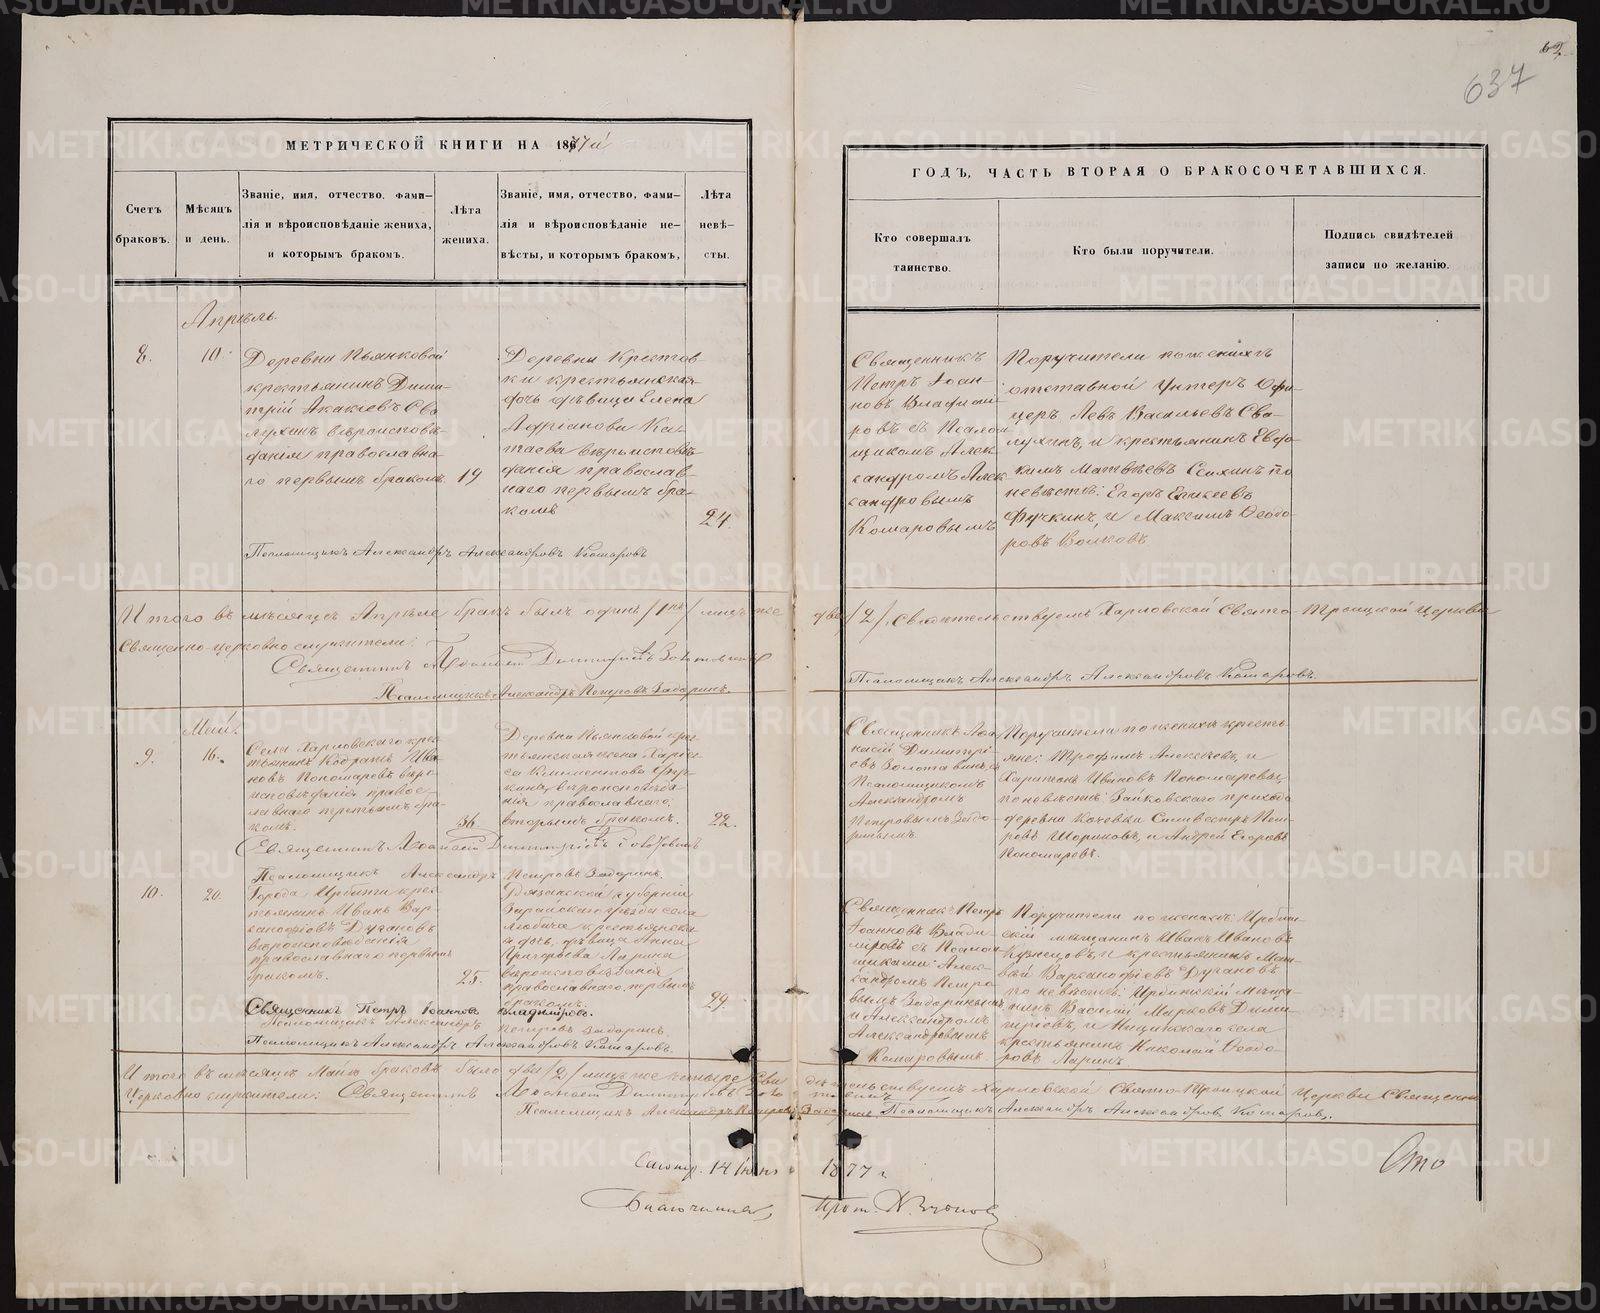 62
637
МЕТРИЧЕСКОЙ КНИГИ НА 1877й
ГОДЪ, ЧАСТЬ ВТОРАЯ О БРАКОСОЧЕТАВШИХСЯ.
Счетъ браковъ.
Мѣсяцъ и день.
Званіе, имя, отчество, фами-
лія и вѣроисповѣданіе жениха,
и которымъ бракомъ.
Лѣта жениха.
Званіе, имя, отчество, фами-
лія и вѣроисповѣданіе не-
вѣсты, и которымъ бракомъ,
Лѣта невѣ-
сты.
Кто совершалъ
таинство.
Кто были поручители.
Подпись свидѣтелей
записи по желанію.
Апрѣль.
8.
10.
Деревни Пьянковой
крестьянинъ Дими-
трій Акакіевъ Сва-
лухинъ вѣроисповѣ-
данія православна-
го первымъ бракомъ.
19
Деревни Крестов-
ки крестьянская
дочь дѣвица Елена
Адріанова Ка-
таева вѣроисповѣ-
данія православ-
наго первымъ бра-
комъ
24.
Священникъ
Петръ Іоан-
новъ Владими-
ровъ съ Псалом-
щикомъ Алек-
сандромъ Алек-
сандровымъ
Комаровымъ
Поручители по женихѣ
отставной Унтеръ Офи-
церъ Левъ Васильевъ Сва-
лухинъ, и крестьянинъ Евдо-
кимъ Матвѣевъ по
невѣстѣ: Егоръ Елисеевъ
Фучкинъ, и Максимъ Ѳеодо-
ровъ Волковъ
Псаломщикъ Александръ Александровъ Комаровъ
Итого въ мѣсяцѣ Апрѣле бракъ былъ одинъ /1нъ/ лицъ же два /2/. Свидѣтельствуемъ Харловской Свято-Троицкой Церкви
Священно-церковнослужители:
Священникъ Аѳанасій Димитріевъ
Псаломщикъ Александръ Петровъ Задоринъ.
Псаломщикъ Александръ Александровъ Комаровъ.
Май.
9.
16.
Села Харловскаго крес-
тьянинъ Кодратъ Ива-
новъ Пономаревъ вѣро-
исповѣданія правос-
лавнаго третьимъ бра-
комъ.
36.
Деревни Пьянковой крес-
тьянская жена Харис-
са Климентова Фуч-
кина, вѣроисповѣда-
нія православнаго,
вторымъ бракомъ.
22.
Священникъ Аѳа-
насій Димитрі-
евъ съ
Псаломщикомъ
Александромъ
Петровымъ Задо-
ринымъ.
Поручители по женихѣ кресть-
яне: Трофимъ Алексѣевъ, и
Харитонъ Ивановъ Пономаревы,
по невѣстѣ: Зайковскаго прихода
деревни Кочевки Силивестръ Пет-
ровъ Шориковъ, и Андрей Егоровъ
Пономаревъ.
Священникъ Аѳанасій Димитріевъ
Псаломщикъ Александръ Петровъ Задоринъ.
10.
20.
Города Ирбити крес-
тьянинъ Иванъ Вар-
ванофіевъ Дугановъ
вѣроисповѣданія
православнаго первымъ
бракомъ.
25.
Рязанской губерніи
Зарайскаго уѣзда села
Любича крестьянска-
я дочь, дѣвица Анна
Григорьева Ларина
вѣроисповѣданія
православнаго, первымъ
бракомъ.
29.
Священникъ Петръ
Іоанновъ Влади-
міровъ съ Псалом-
щиками: Алек-
сандромъ Петро-
вымъ Задоринымъ
и Александромъ
Александровымъ
Комаровымъ
Поручители по женихѣ: Ирбит-
скій мѣщанинъ Иванъ Ивановъ
Кузнецовъ, и крестьянинъ Мат-
вѣй Варванофіевъ Дугановъ
по невѣстѣ: Ирбитскій мѣща-
нинъ Василій Марковъ Дими-
тріевъ, и Ницинскаго села
крестьянинъ Николай Ѳеодо-
ровъ Ларинъ
Священникъ Петръ Іоанновъ Владиміровъ.
Псаломщикъ Александръ Петровъ Задоринъ
Псаломщикъ Александръ Александровъ Комаровъ.
Итого въ мѣсяцѣ Майѣ браковъ было два /2/ лицъ же четыре. Свидѣтельствуемъ Харловской Свято-Троицкой Церкви Священно
Церковнослужители: Священникъ Аѳанасій Димитріевъ
Псаломщикъ Александръ Петровъ Задоринъ Псаломщикъ Александръ Александровъ Комаровъ.
14 Іюня 1877 г
Благочинный, Прот.
METRIKI.GASO-URAL.RU